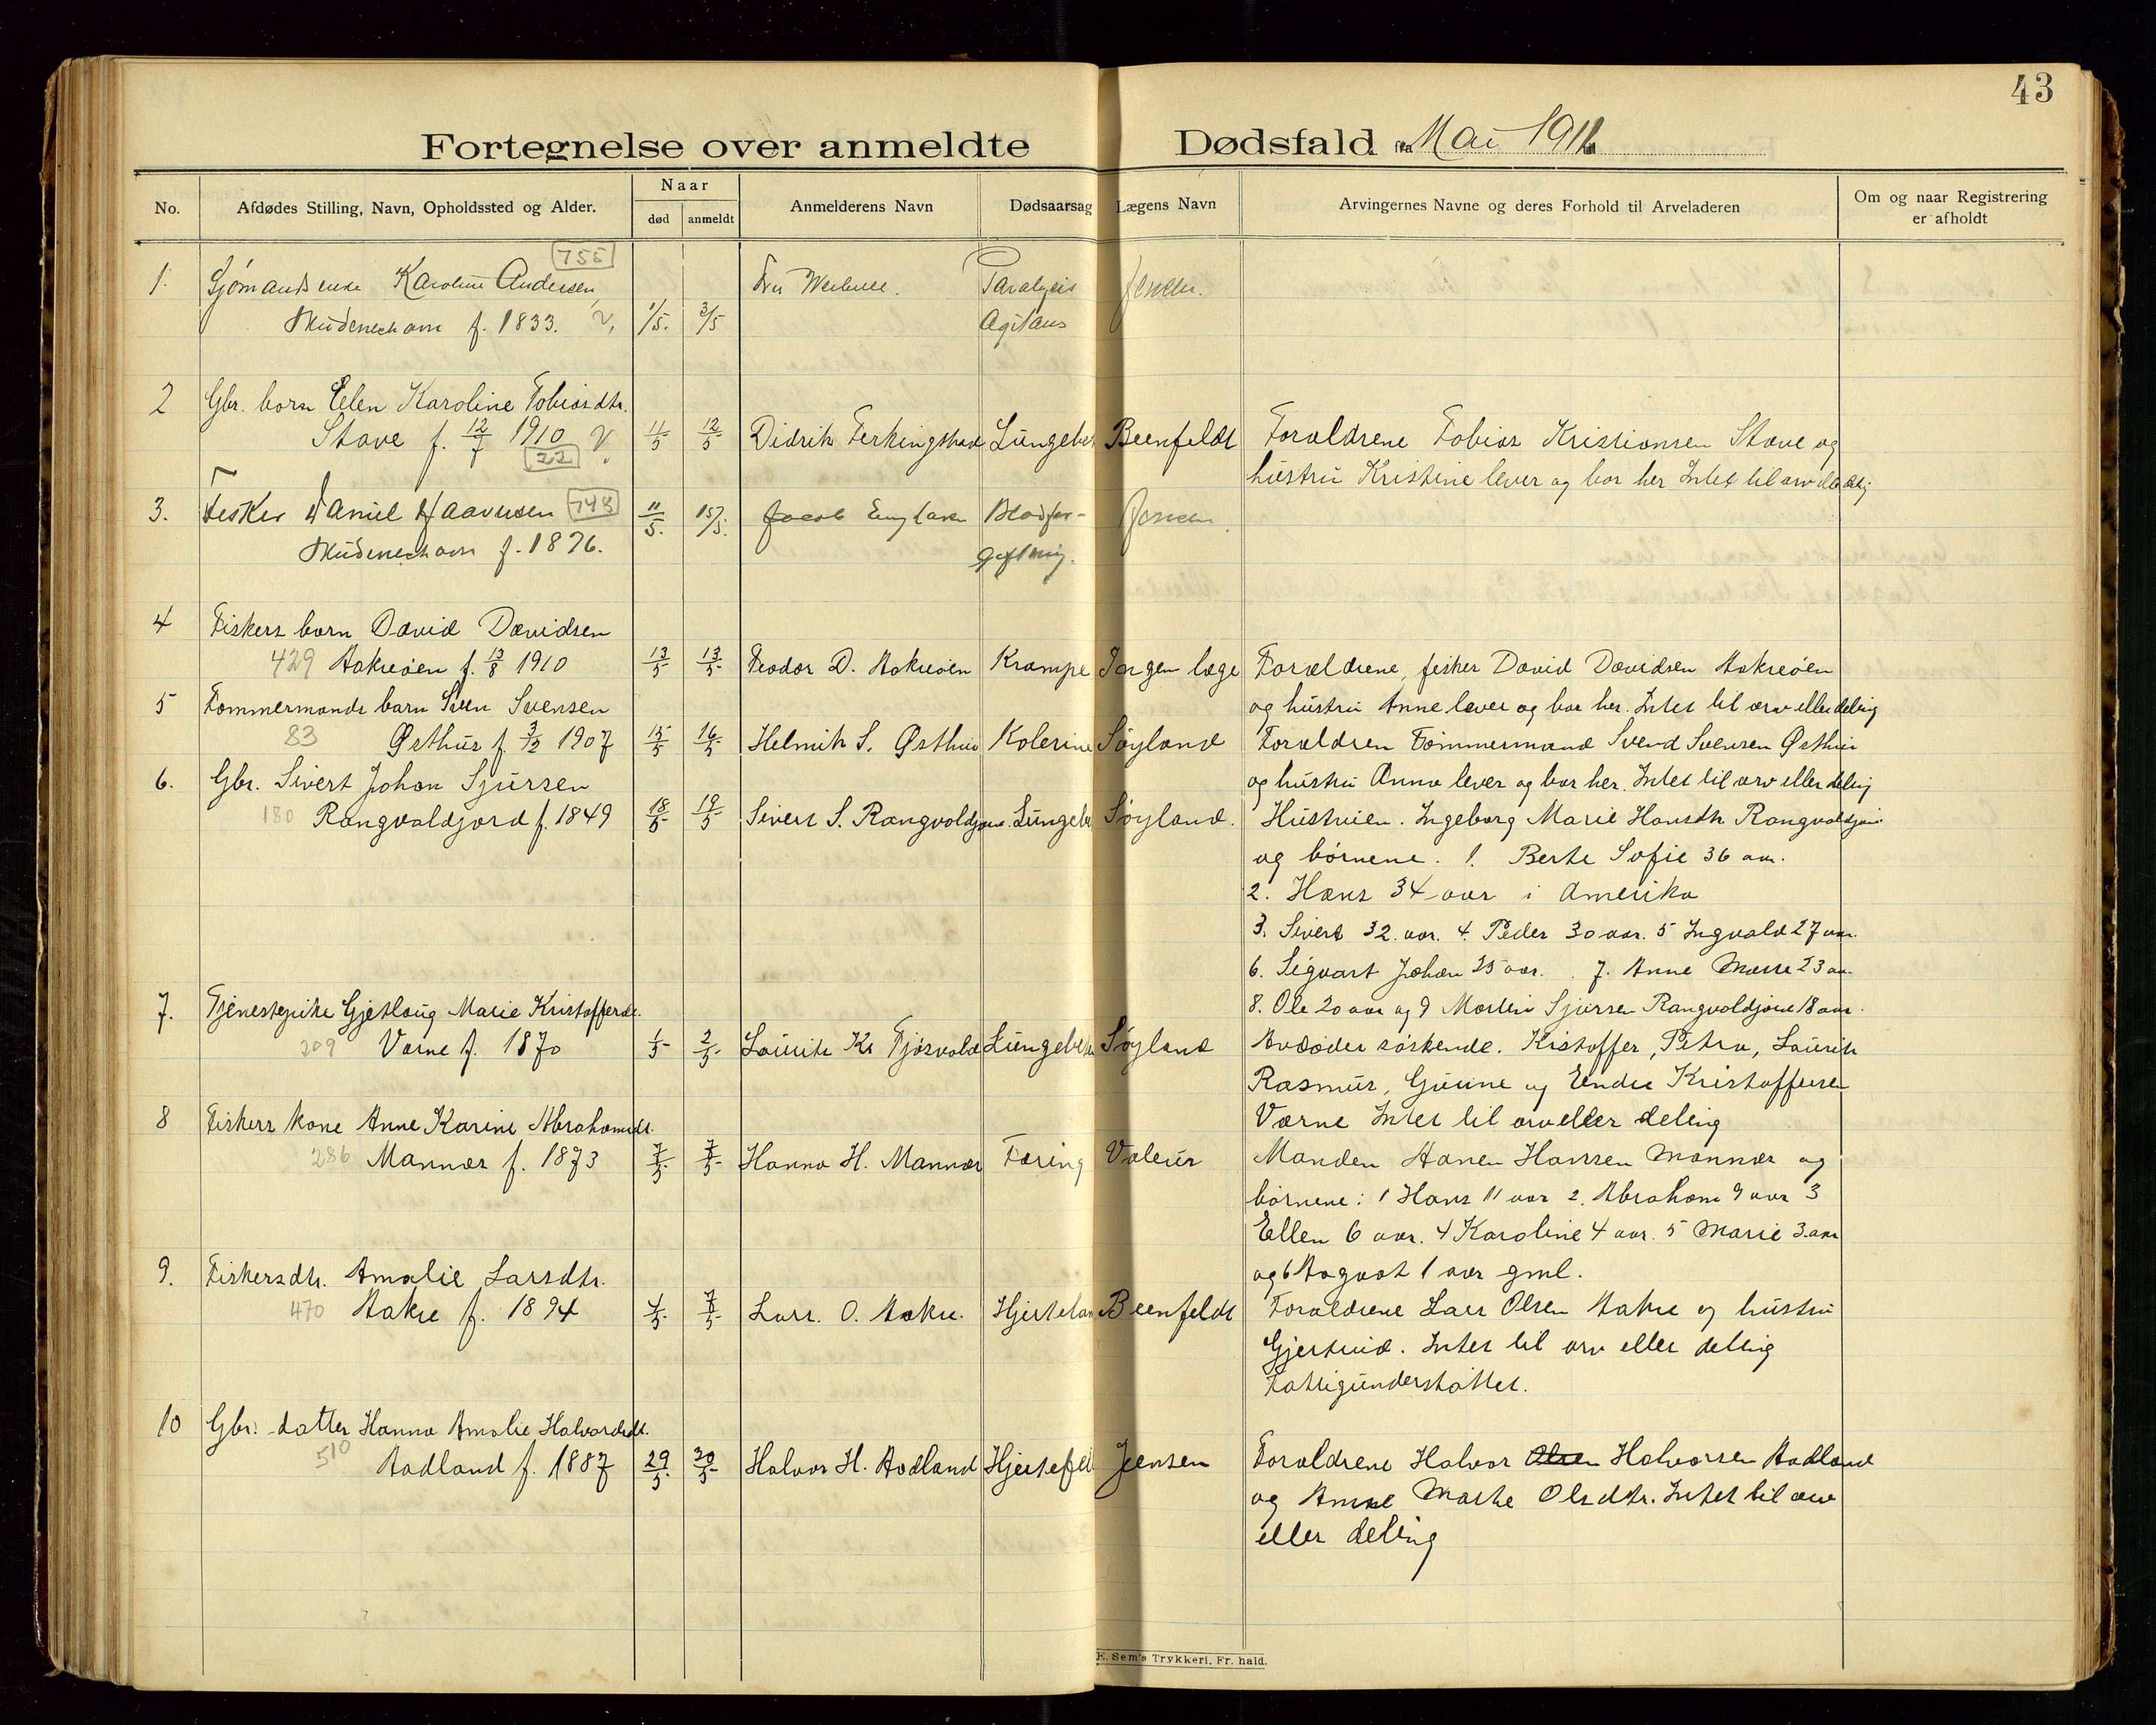 43
Fortegnelse over anmeldte Dødsfald Mai 1911
No.
Afdødes Stilling, Navn, Opholdssted og Alder.
Naar
død
anmeldt
Anmelderens Navn
Dødsaarsag
Lægens Navn
Arvingernes Navne og deres Forhold til Arveladeren
Om og naar Registrering
er afholdt
755
1. Sjømands enke Karoline Andersen Paralysis Jensen.
Skudeneshavn f. 1833. 1/5. 3/5 Agitans
2 Gbr. barn Elen Karoline Tobiasdtr.
Stave f. 12/7 1910 11/5 12/5 Didrik Ferkingstad Lungebe Beenfeldt Forældrene Tobias Kristiansen Stave og
22
hustru Kristine lever og bor her Intet til arv eller delig
3. Fisker Daniel Haavesen 748 11/5. 15/5. Jacob Blodfor- Jensen
Skudeneshavn f. 1876. giftnig.
4 Fiskers barn David Davidsen
429 Aakreøen f. 13/8 1910 13/5 13/5 Teodor D. Aakreøen Krampe Ingen læge Forældrene, fisker David Davidsen Aakreøen
5 Tømmermands barn Sven Svensen og hustru Anne lever og bor her. Intet til arv eller delig
83 Østhus f. 3/12 1907 15/5 16/5 Helmik S. Østhus Kolerine Søyland Forældren Tømmermand Svend Svensen Østhus
6. Gbr. Sivert Johan Sjursen og hustru Anna lever og bor her. Intet til arv eller delig
180 Rangvaldjord f. 1849 18/5 19/5 Sivert S. Rangvaldjord Lungebe Søyland. Hustruen. Ingeborg Marie Hansdtr Rangvaldjord
og børnene. 1. Berte Sofie 36 aar.
2. Hans 34 aar i Amerika
3. Sivert 32. aar. 4. Peder 30 aar. 5 Ingvald 27 aar.
6. Sigvart Johan 25 aar. 7. Anne Marie 23 aar
7. Tjenestepike Gjetlaug Marie Kristoffersdt. 8. Ole 20 aar og 9 Martin Sjursen Rangvaldjord 18 aar.
209 Værne f. 1870 1/5 2/5 Laurits Kr Tjøsvold Lungebe Søyland Avdødes søskende. Kistoffer, Petra, Laurits
Rasmus, Gunne og Endre Kristoffersen
8 Fiskers kone Anne Karine Abrahamsdt. Værne Intet til arv eller delig
286 Mannes f. 1873 7/5 7/5 Hanna H. Mannes Tæring Valeur Manden Hanen Hansen Mannes og
børnene: 1 Hans 11 aar 2. Abraham 9 aar 3
Ellen 6 aar. 4 Karoline 4 aar. 5 Marie 3 aar
9. Fiskersdtr. Amalie Larsdtr. og 6 August 1 aar gml.
470 Aakre f. 1894 4/5 7/5 Lars. O. Aakre. Hjertelam Beenfeldt Forældrene Lars Olsen Aakre og hustru
Gjertrud. Intet til arv eller delig
Fattigunderstøttet.
10 Gbr. datter Hanna Amalie Halvorsdt.
510 Aadland f. 1887 29/5. 30/5 Halvor H. Aadland Hjertefeil Jensen Forældrene Halvor Olsen Halvorsen Aadland
og Anne Marthe Olsdtr. Intet til arv
eller delig
E. Sem's Trykkeri, Fr. hald.